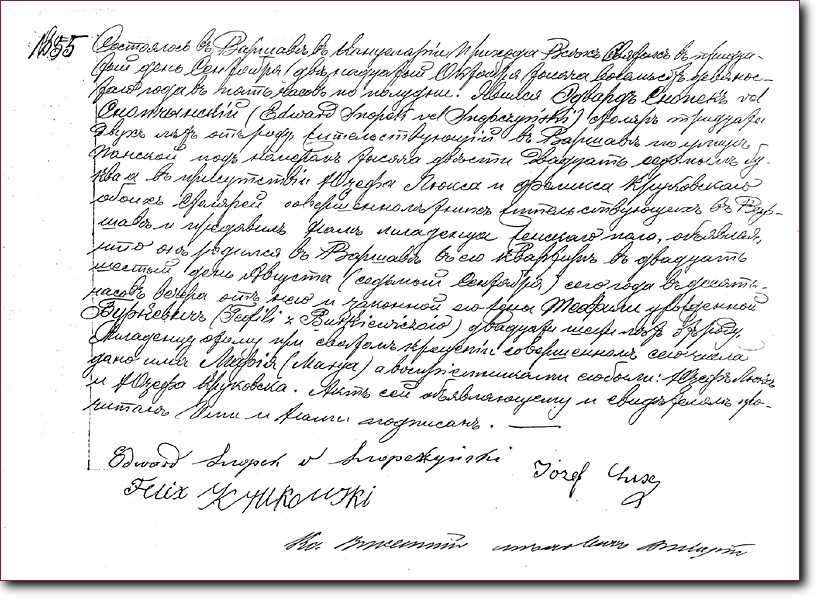 № 55
Состоялось въ Варшавѣ въ Канцеляріи Прихода Всѣхъ Святыхъ въ тридца-
тый день Сентября (двѣнадцатый Октября) тысяча восемьсотъ девянос-
таго года въ пять часовъ по полудни. Явился Эдвардъ Снопекъ vel
Снопчынскій (Edward Snopek vel Snopczyński) столяръ тридцати
двухъ лѣтъ отъ роду жительствующій въ Варшавѣ по улицѣ
Панской подъ номеромъ тысяча двѣсти двадцать седьмымъ бу-
ква въ присутствіи Юзефа Люкса и Феликса Круковскаго
обоихъ столярей совершеннолѣтнихъ жительствующихъ въ Вар-
шавѣ и предъявилъ Намъ младенца женскаго пола, объявляя,
что онъ родился въ Варшавѣ въ его квартирѣ въ двадцать
шестый день Августа (седьмый Сентября) сего года въ десять
часовъ вечера отъ него и законной его жены Теофили урожденной
Буркевичъ (Teofili z Burkiewiczów) двадцати шести лѣтъ отъ роду.
Младенцу этому при святомъ крещеніи совершенномъ сего числа
дано имя Марія (Marya) а воспріемниками его были: Юзефъ Люксъ
и Юзефа Круковска. Актъ сей объявляющему и свидѣтелямъ про-
читанъ Ими и Нами подписанъ.
Edward Snopek v Snopczyński
Józef Lux
Felix Krukowski
Кс. Викентій